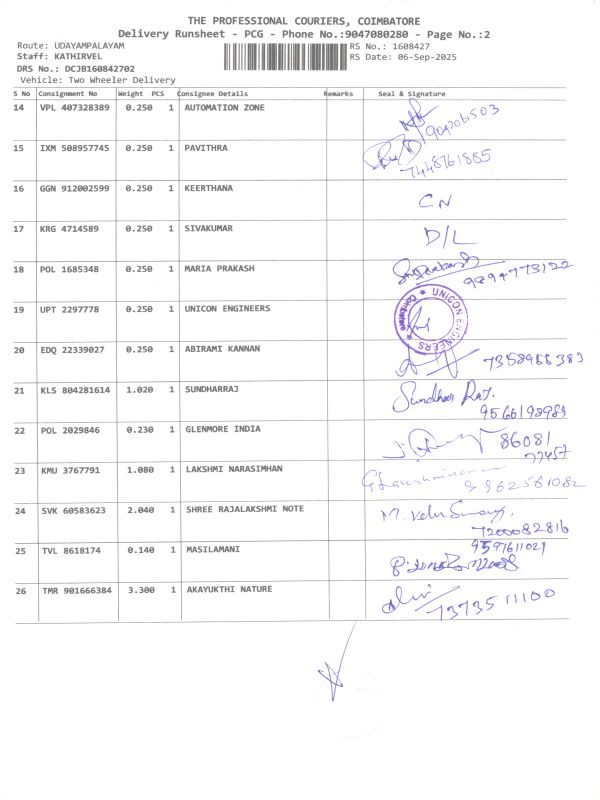 THE PROFESSIONAL COURIERS, COIMBATORE
Delivery Runsheet - PCG - Phone No.:9047080280 - Page No.:2
Route: UDAYAMPALAYAM RS No.: 1608427
Staff: KATHIRVEL RS Date: 06-Sep-2025
DRS No.: DCJB160842702
Vehicle: Two Wheeler Delivery
S No Consignment No Weight PCS Consignee Details Remarks Seal & Signature
14 VPL 407328389 0.250 1 AUTOMATION ZONE
15 IXM 508957745 0.250 1 PAVITHRA 7448761885
16 GGN 912002599 0.250 1 KEERTHANA CN
17 KRG 4714589 0.250 1 SIVAKUMAR D/L
18 POL 1685348 0.250 1 MARIA PRAKASH
19 UPT 2297778 0.250 1 UNICON ENGINEERS UNICON ENGINEERS Coimbatore
20 EDQ 22339027 0.250 1 ABIRAMI KANNAN
21 KLS 804281614 1.020 1 SUNDHARRAJ Sundhar Raj.
9566198989
22 POL 2029846 0.230 1 GLENMORE INDIA 86081
77457
23 KMU 3767791 1.080 1 LAKSHMI NARASIMHAN
24 SVK 60583623 2.040 1 SHREE RAJALAKSHMI NOTE
7200082816
25 TVL 8618174 0.140 1 MASILAMANI 9597611029
26 TMR 901666384 3.300 1 AKAYUKTHI NATURE 7373511100